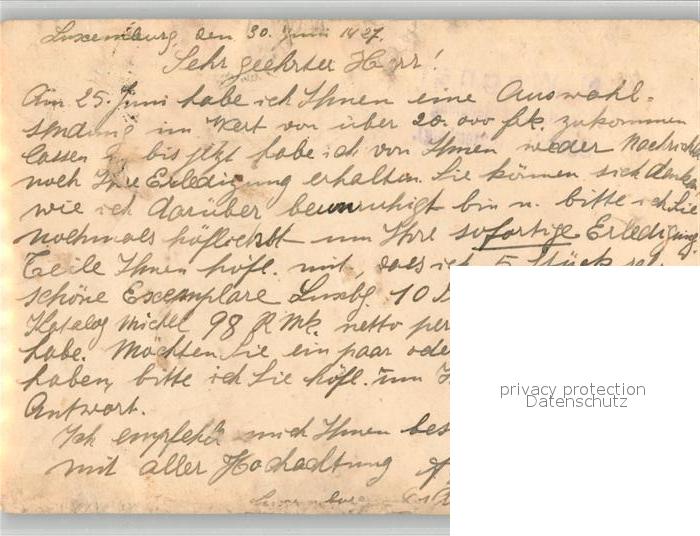 Luxemburg, den 30. Juni 1927.
Sehr geehrter Herr!
Am 25. Juni habe ich Ihnen eine Auswahl-
sendung im Wert von über 20.000 frk. zukommen
lassen u. bis jetzt habe ich von Ihnen weder Nachricht
noch Ihre Erledigung erhalten. Sie können sich denken
wie ich darüber beunruhigt bin u. bitte ich Sie
nochmals höflichst um Ihre sofortige Erledigung.
Teile Ihnen höfl. mit, dass ich 5 Stück
schöne Exemplare Luxbg 10
Katalog Michel 98 R Mk. netto per
habe. Möchten Sie ein paar
haben, bitte ich Sie höfl. um
Antwort.
Ich empfehle mich Ihnen
mit aller Hochachtung
privacy protection
Datenschutz